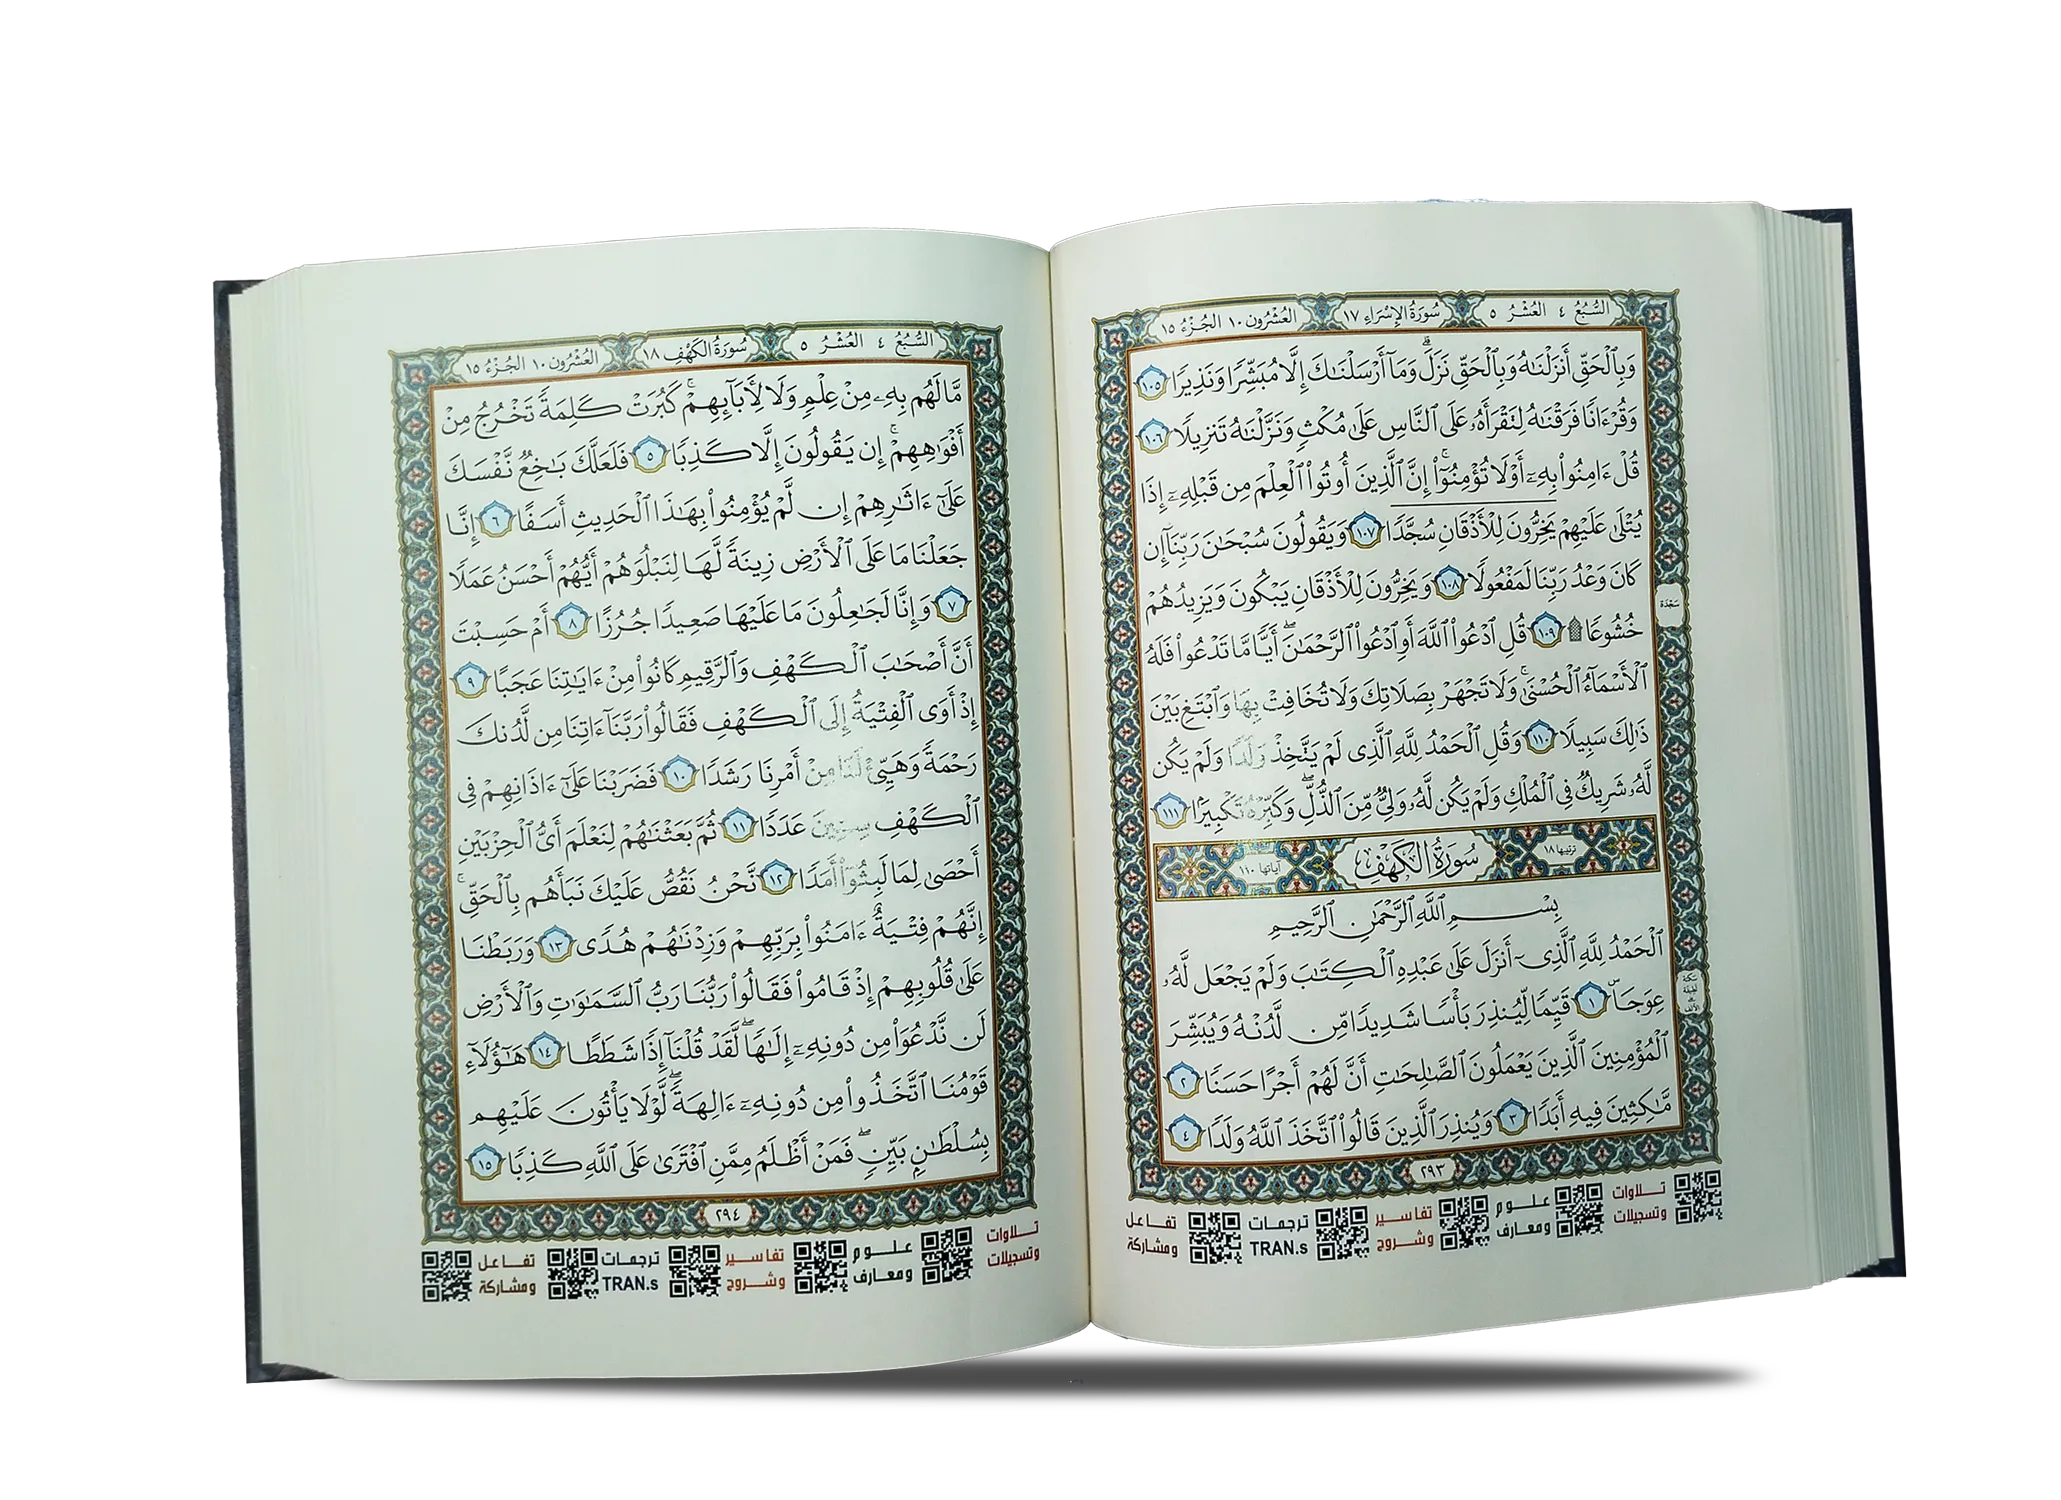 السُّبُعُ ٤ العُشْرُ ٥ سُورَةُ الإِسْرَاءِ ١٧ العُشْرُونَ ١٠ الجُزْءُ ١٥
وَبِٱلْحَقِّ أَنزَلْنَٰهُ وَبِٱلْحَقِّ نَزَلَۗ وَمَآ أَرْسَلْنَٰكَ إِلَّا مُبَشِّرًا وَنَذِيرًا ١٠٥
وَقُرْءَانًا فَرَقْنَٰهُ لِتَقْرَأَهُۥ عَلَى ٱلنَّاسِ عَلَىٰ مُكْثٍ وَنَزَّلْنَٰهُ تَنزِيلًا ١٠٦
قُلْ ءَامِنُوا۟ بِهِۦٓ أَوْ لَا تُؤْمِنُوٓا۟ۚ إِنَّ ٱلَّذِينَ أُوتُوا۟ ٱلْعِلْمَ مِن قَبْلِهِۦٓ إِذَا
يُتْلَىٰ عَلَيْهِمْ يَخِرُّونَ لِلْأَذْقَانِ سُجَّدًا ١٠٧ وَيَقُولُونَ سُبْحَٰنَ رَبِّنَآ إِن
كَانَ وَعْدُ رَبِّنَا لَمَفْعُولًا ١٠٨ وَيَخِرُّونَ لِلْأَذْقَانِ يَبْكُونَ وَيَزِيدُهُمْ
خُشُوعًا ۩ ١٠٩ قُلِ ٱدْعُوا۟ ٱللَّهَ أَوِ ٱدْعُوا۟ ٱلرَّحْمَٰنَۖ أَيًّا مَّا تَدْعُوا۟ فَلَهُ
سَجْدَة
ٱلْأَسْمَآءُ ٱلْحُسْنَىٰۚ وَلَا تَجْهَرْ بِصَلَاتِكَ وَلَا تُخَافِتْ بِهَا وَٱبْتَغِ بَيْنَ
ذَٰلِكَ سَبِيلًا ١١٠ وَقُلِ ٱلْحَمْدُ لِلَّهِ ٱلَّذِى لَمْ يَتَّخِذْ وَلَدًا وَلَمْ يَكُن
لَّهُۥ شَرِيكٌ فِى ٱلْمُلْكِ وَلَمْ يَكُن لَّهُۥ وَلِىٌّ مِّنَ ٱلذُّلِّۖ وَكَبِّرْهُ تَكْبِيرًۢا ١١١
ترتيبها ١٨ سُورَةُ الكَهْفِ آياتها ١١٠
بِسْمِ ٱللَّهِ ٱلرَّحْمَٰنِ ٱلرَّحِيمِ
ٱلْحَمْدُ لِلَّهِ ٱلَّذِىٓ أَنزَلَ عَلَىٰ عَبْدِهِ ٱلْكِتَٰبَ وَلَمْ يَجْعَل لَّهُۥ
عِوَجَاۜ ١ قَيِّمًا لِّيُنذِرَ بَأْسًا شَدِيدًا مِّن لَّدُنْهُ وَيُبَشِّرَ
ٱلْمُؤْمِنِينَ ٱلَّذِينَ يَعْمَلُونَ ٱلصَّٰلِحَٰتِ أَنَّ لَهُمْ أَجْرًا حَسَنًا ٢
مَّٰكِثِينَ فِيهِ أَبَدًا ٣ وَيُنذِرَ ٱلَّذِينَ قَالُوا۟ ٱتَّخَذَ ٱللَّهُ وَلَدًا ٤
٢٩٣
تلاوات وتسجيلات
علوم ومعارف
تفاسير وشروح
ترجمات TRAN.s
تفاعل ومشاركة
السُّبُعُ ٤ العُشْرُ ٥ سُورَةُ الكَهْفِ ١٨ العُشْرُونَ ١٠ الجُزْءُ ١٥
مَّا لَهُم بِهِۦ مِنْ عِلْمٍ وَلَا لِأَبَآئِهِمْۚ كَبُرَتْ كَلِمَةً تَخْرُجُ مِنْ
أَفْوَٰهِهِمْۚ إِن يَقُولُونَ إِلَّا كَذِبًا ٥ فَلَعَلَّكَ بَٰخِعٌ نَّفْسَكَ
عَلَىٰٓ ءَاثَٰرِهِمْ إِن لَّمْ يُؤْمِنُوا۟ بِهَٰذَا ٱلْحَدِيثِ أَسَفًا ٦ إِنَّا
جَعَلْنَا مَا عَلَى ٱلْأَرْضِ زِينَةً لَّهَا لِنَبْلُوَهُمْ أَيُّهُمْ أَحْسَنُ عَمَلًا
٧ وَإِنَّا لَجَٰعِلُونَ مَا عَلَيْهَا صَعِيدًا جُرُزًا ٨ أَمْ حَسِبْتَ
أَنَّ أَصْحَٰبَ ٱلْكَهْفِ وَٱلرَّقِيمِ كَانُوا۟ مِنْ ءَايَٰتِنَا عَجَبًا ٩
إِذْ أَوَى ٱلْفِتْيَةُ إِلَى ٱلْكَهْفِ فَقَالُوا۟ رَبَّنَآ ءَاتِنَا مِن لَّدُنكَ
رَحْمَةً وَهَيِّئْ لَنَا مِنْ أَمْرِنَا رَشَدًا ١٠ فَضَرَبْنَا عَلَىٰٓ ءَاذَانِهِمْ فِى
ٱلْكَهْفِ سِنِينَ عَدَدًا ١١ ثُمَّ بَعَثْنَٰهُمْ لِنَعْلَمَ أَىُّ ٱلْحِزْبَيْنِ
أَحْصَىٰ لِمَا لَبِثُوٓا۟ أَمَدًا ١٢ نَّحْنُ نَقُصُّ عَلَيْكَ نَبَأَهُم بِٱلْحَقِّۚ
إِنَّهُمْ فِتْيَةٌ ءَامَنُوا۟ بِرَبِّهِمْ وَزِدْنَٰهُمْ هُدًى ١٣ وَرَبَطْنَا
عَلَىٰ قُلُوبِهِمْ إِذْ قَامُوا۟ فَقَالُوا۟ رَبُّنَا رَبُّ ٱلسَّمَٰوَٰتِ وَٱلْأَرْضِ
لَن نَّدْعُوَا۟ مِن دُونِهِۦٓ إِلَٰهًاۖ لَّقَدْ قُلْنَآ إِذًا شَطَطًا ١٤ هَٰٓؤُلَآءِ
قَوْمُنَا ٱتَّخَذُوا۟ مِن دُونِهِۦٓ ءَالِهَةًۖ لَّوْلَا يَأْتُونَ عَلَيْهِم
بِسُلْطَٰنٍۭ بَيِّنٍۖ فَمَنْ أَظْلَمُ مِمَّنِ ٱفْتَرَىٰ عَلَى ٱللَّهِ كَذِبًا ١٥
٢٩٤
تلاوات وتسجيلات
علوم ومعارف
تفاسير وشروح
ترجمات TRAN.s
تفاعل ومشاركة